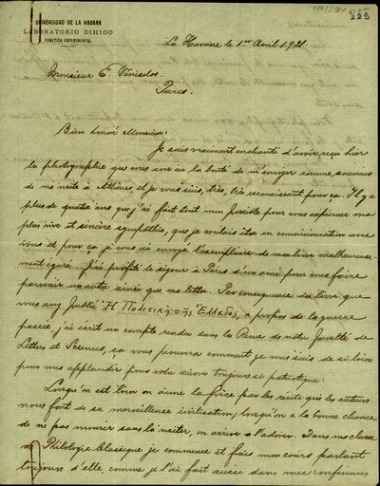 UNIVERSIDAD DE LA HABANA
LABORATORIO DIHIGO
FONÉTICA EXPERIMENTAL
225
La Havane le 1er Avril 1921.
Monsieur E. Véniselos.
Paris.
Bien aimé Monsieur:
Je suis vraiment enchanté d'avoir reçu hier
la photographie que vous avez eu la bonté de m'envoyer comme souvenir
de ma visite à Athènes et je vous suis, très, très reconnaissant pour ça. Il y a
plus de quatre ans que j'ai fait tout mon possible pour vous exprimer ma
plus vive et sincère sympathie, que je voulais être en communication avec
vous et pour ça je vous ai envoyé l'exemplaire de mon livre malheureuse-
ment égaré. J'ai profité le séjour à Paris d'un ami pour vous faire
parvenir un autre ainsi que ma lettre. Par conséquence du livre que
vous avez publié "Η Πολιτική της Ελλάδος", à propos de la guerre
passée, j'ai écrit un compte rendu dans la Revue de notre Faculté de
Lettres et Sciences, où vous pourrez comment je me suis de si loin
pour vous applaudir pour votre œuvre toujours si patriotique.
Lorsqu'on est loin on aime la Grèce par les récits que les auteurs
nous font de sa merveilleuse civilisation; lorsqu'on a la bonne chance
de ne pas mourir sans la visiter, on arrive à l'adorer. Dans ma classe de
Philologie Classique je commence et finis mon cours parlant
toujours d'elle, comme je l'ai fait aussi dans mes conférences